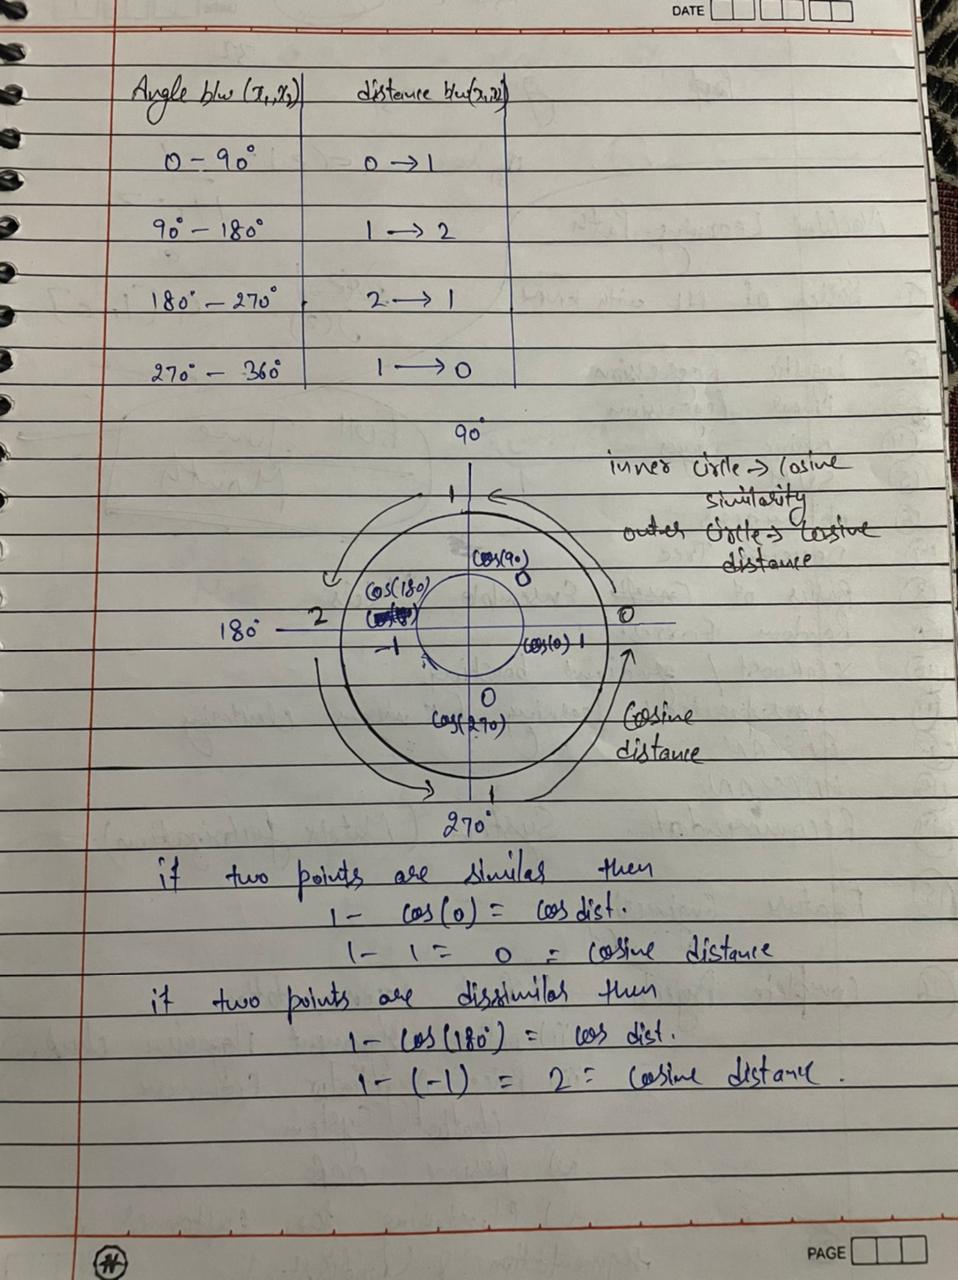 DATE
Angle b/w (x₁,x₂) distance b/w(x₁,x₂)
0 - 90° 0 → 1
90° - 180° 1 → 2
180° - 270° 2 → 1
270° - 360° 1 → 0
90°
inner circle → Cosine
similarity
outer circle → Cosine
distance
1
cos(90)
0
cos(180)
180° 2 0
-1 cos(0) 1
0
cos(270)
Cosine
distance
1
270°
if two points are similar then
1 - cos(0) = cos dist.
1 - 1 = 0 = cosine distance
if two points are dissimilar then
1 - cos(180°) = cos dist.
1 - (-1) = 2 = cosine distance.
PAGE